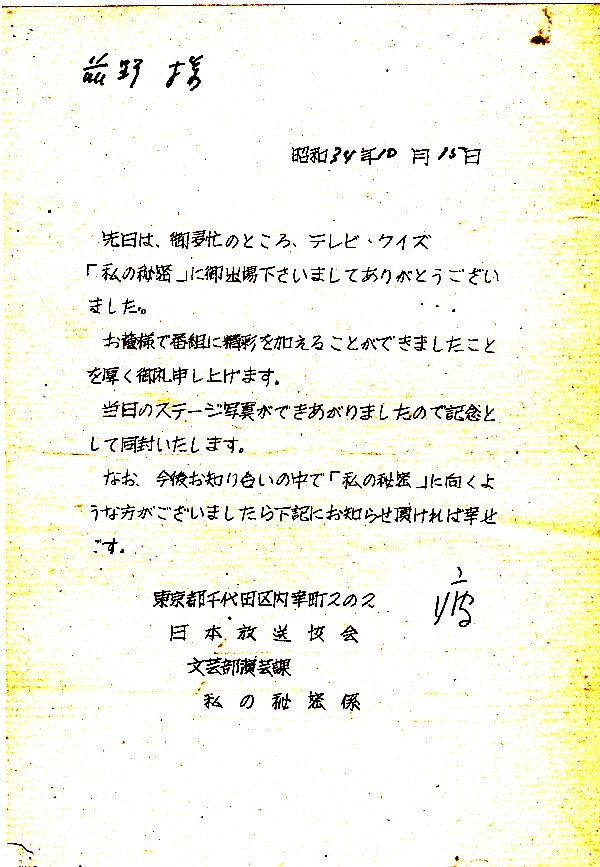 前野 様
昭和34年10月15日
先日は、御多忙のところ、テレビ・クイズ
「私の秘密」に御出場下さいましてありがとうござい
ました。
お蔭様で番組に精彩を加えることができましたこと
を厚く御礼申し上げます。
当日のステージ写真ができあがりましたので記念と
して同封いたします。
なお、今後お知り合いの中で「私の秘密」に向くよ
うな方がございましたら下記にお知らせ頂ければ幸せ
です。
東京都千代田区内幸町2の2
日本放送協会
文芸部演芸課
私の秘密係